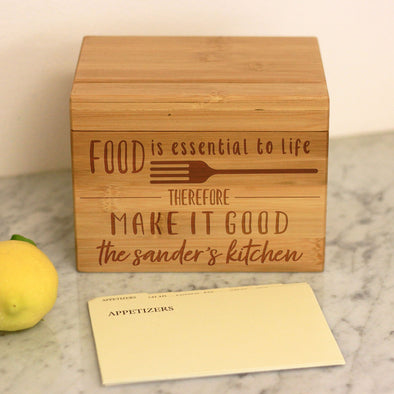 FOOD is essential to life
THEREFORE
MAKE IT GOOD
the sander's kitchen
APPETIZERS
APPETIZERS